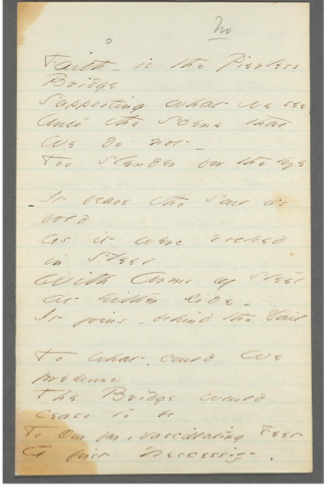 No
Faith - is the Pierless
Bridge
Supporting what We see
Unto the Scene that
We do not -
Too Slender for the eye
It bears the Soul as
bold
As it were rocked
in Steel
With Arms of Steel
at either side -
It joins - behind the Vail
To what, could We
presume
The Bridge would
cease to be
To Our far, vascillating Feet
A first Nescessity.